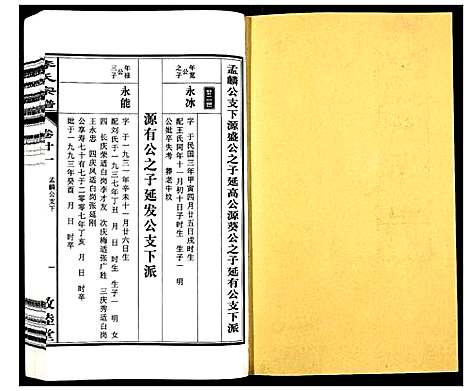 孟麟公支下源盛公之子延高公源葵公之子延有公支下派
廿三世
年寬公之子
永冰
字 于民国三年甲寅四月廿五日戌时生
配王氏同年十一月初十日子时生 生子一 明
公妣卒失考 葬老中坟
源有公之子延发公支下派
年禄公三子
永能
字 于一九三一年辛未十一月廿六日生
配刘氏于一九三七年丁丑 月 日 时生 生子一 明 女
四 长庆荣适白岗李才友 次庆梅适张广胜 三庆秀适白岗
王永忠 四庆凤适白岗张延刚
公享寿七十有七于二零零七年丁亥 月 日 时卒
妣于一九九三年癸酉 月 日 时卒
李氏宗谱
卷廿一
孟麟公支下
一
敦睦堂